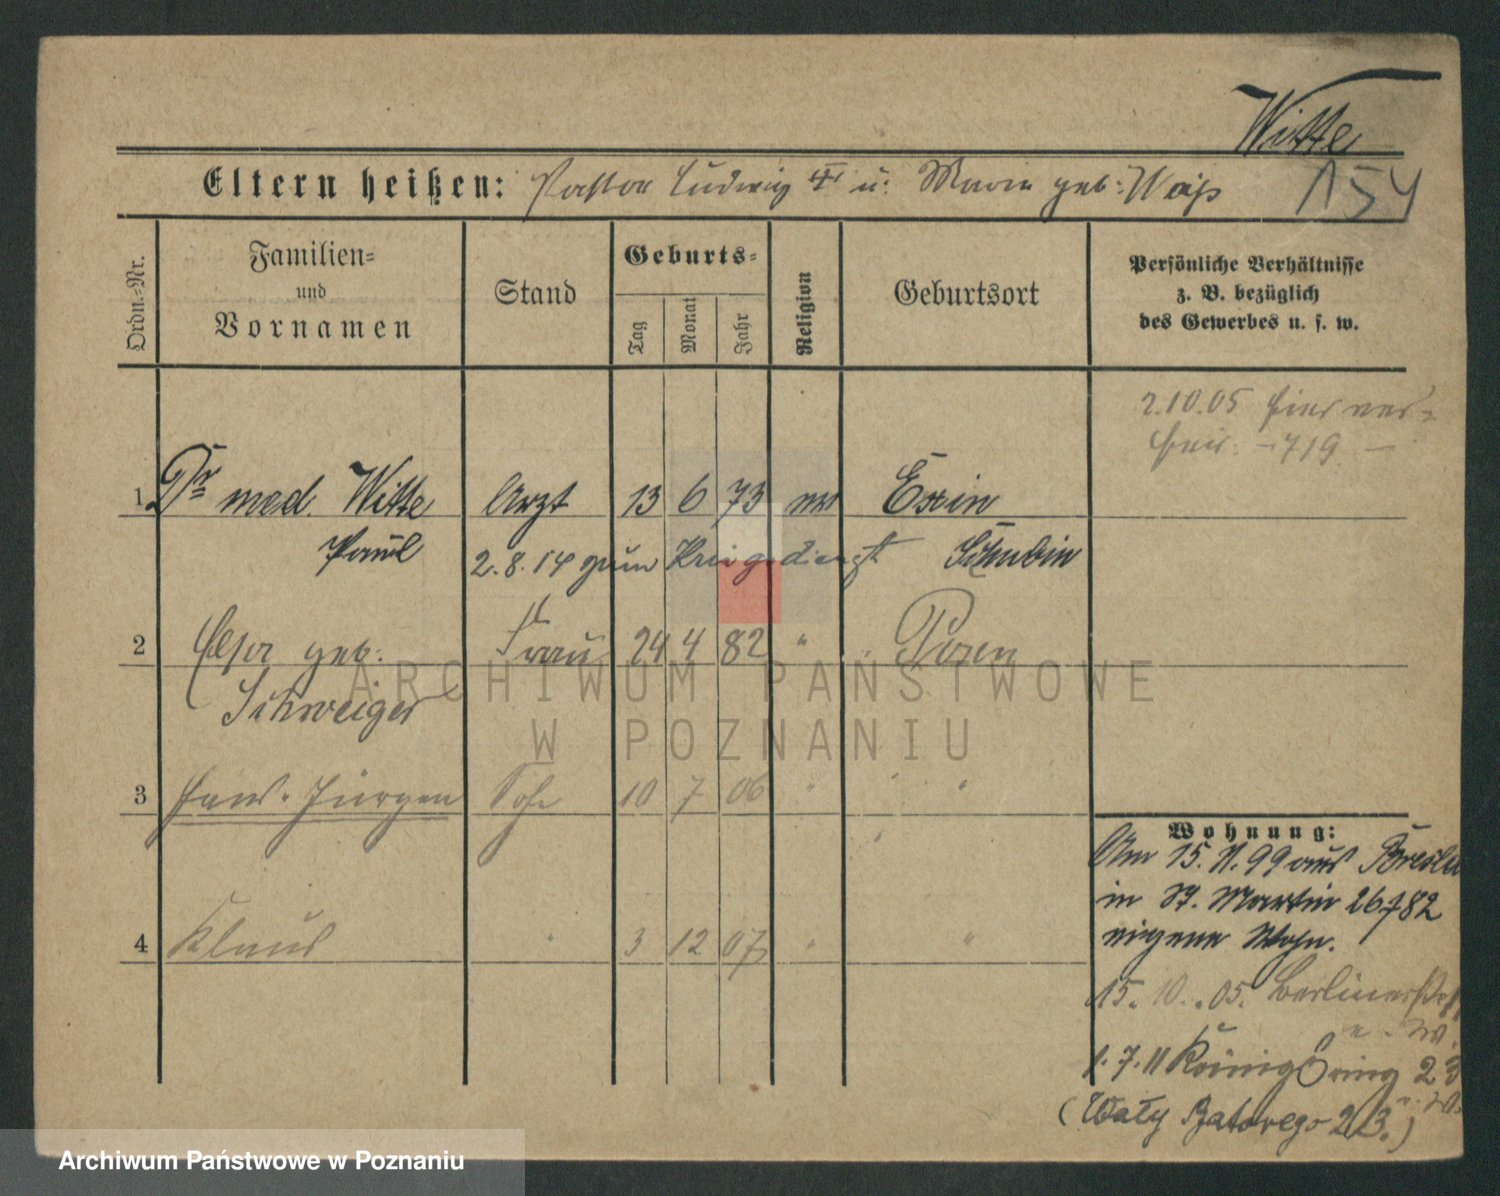 Witte
Eltern heißen: Pastor Ludwig W u. Marie geb. Weiß
154
Ordn.-Nr.
Familien-
und
Vornamen
Stand
Geburts-
Tag
Monat
Jahr
Religion
Geburtsort
Persönliche Verhältnisse
z. B. bezüglich
des Gewerbes u. s. w.
2.10.05 hier ver-
heir. -719-
1 Dr med. Witte Arzt 13 6 73 Exin
Paul 2.8.14 zum Kriegsdienst Schubin
2 Elsa geb. Frau 24 4 82 " Posen
Schweiger
3 Hans-Jürgen Sohn 10 7 06 " "
4 Klaus " 3 12 07 " "
Wohnung:
Am 15.11.99 aus Breslau
in St. Martin 26/782
eigene Wohn.
15.10.05. Berlinerstr.
e. W.
1.7.11 Königsring 23
e. W.
(Wały Batorego 23.)
ARCHIWUM PAŃSTWOWE
W POZNANIU
Archiwum Państwowe w Poznaniu